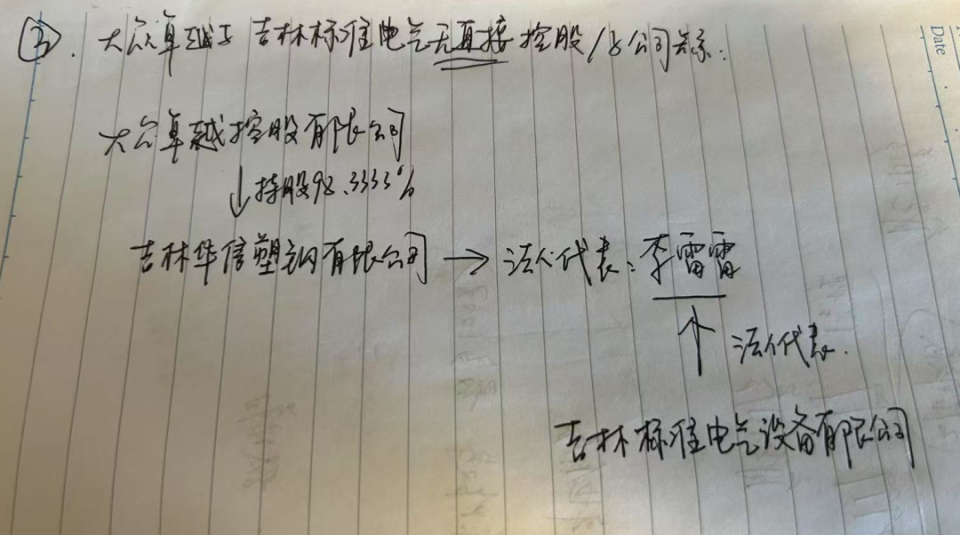 ③. 大众卓越与吉林标准电气无直接控股/分公司关系.
Date
大众卓越控股有限公司
↓持股98.3333%
吉林华信塑钢有限公司 → 法人代表:李雷雷
↑ 法人代表.
吉林标准电气设备有限公司